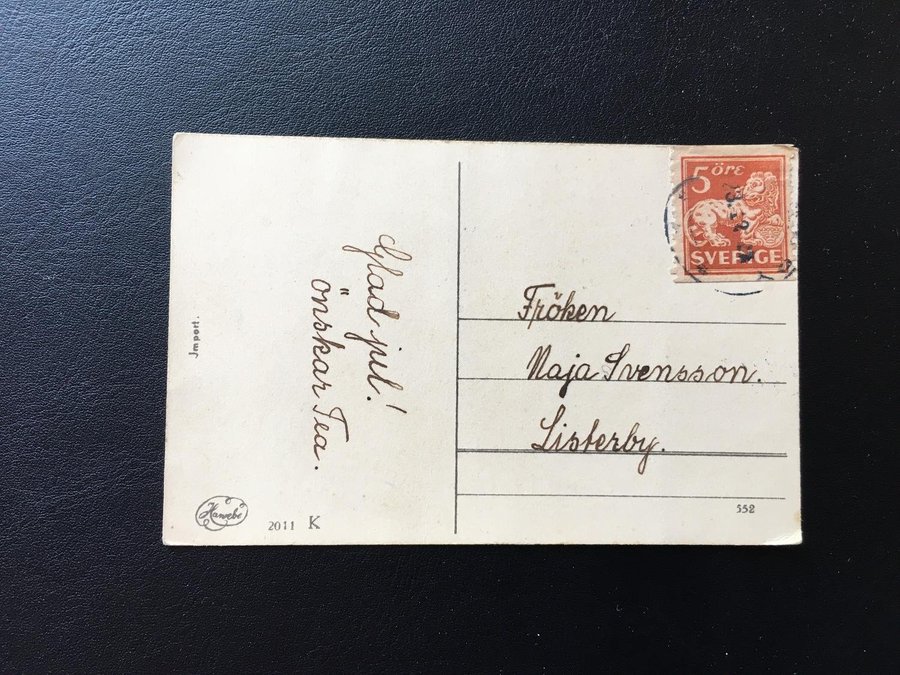 Glad jul!
önskar Tea.
5 öre
SVERIGE
Fröken
Maja Svensson.
Listerby.
Import.
Hawebe
2011 K
552